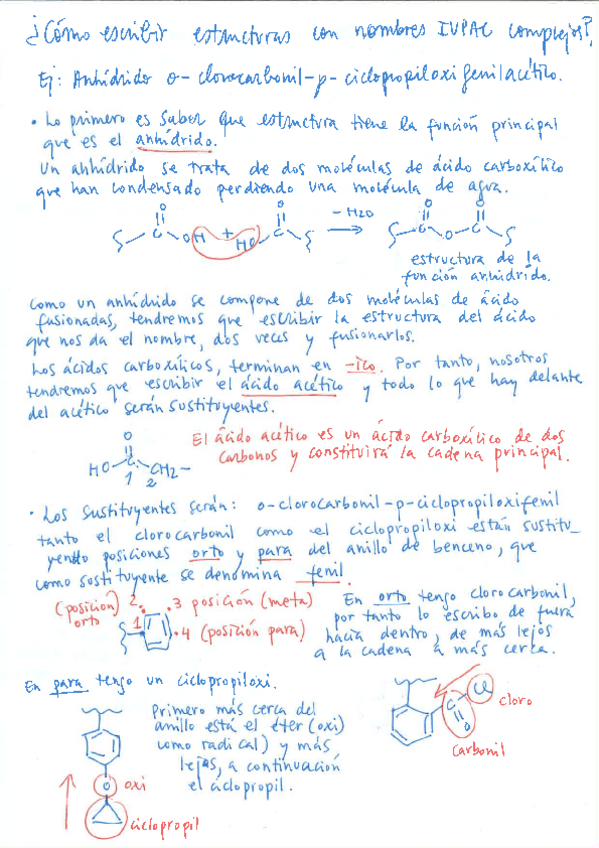 ¿Cómo escribir estructuras con nombres IUPAC complejos?
Ej: Anhídrido o-clorocarbonil-p-ciclopropiloxifenilacético.
• Lo primero es saber que estructura tiene la función principal
que es el anhídrido.
Un anhídrido se trata de dos moléculas de ácido carboxílico
que han condensado perdiendo una molécula de agua.
O O -H2O O O
C OH + HO C → C O C
estructura de la
función anhídrido.
Como un anhídrido se compone de dos moléculas de ácido
fusionadas, tendremos que escribir la estructura del ácido
que nos da el nombre, dos veces y fusionarlos.
Los ácidos carboxílicos, terminan en -ico. Por tanto, nosotros
tendremos que escribir el ácido acético y todo lo que hay delante
del acético serán sustituyentes.
O
HO-C-CH2-
1 2
El ácido acético es un ácido carboxílico de dos
carbonos y constituirá la cadena principal.
• Los sustituyentes serán: o-clorocarbonil-p-ciclopropiloxifenil
tanto el clorocarbonil como el ciclopropiloxi están sustitu-
yendo posiciones orto y para del anillo de benceno, que
como sostituyente se denomina fenil.
(posición orto) 2. . 3 posición (meta)
1 . 4 (posición para)
En orto tengo clorocarbonil,
por tanto lo escribo de fuera
hacia dentro, de más lejos
a la cadena a más cerca.
En para tengo un ciclopropiloxi.
Primero más cerca del
anillo está el éter (oxi)
como radical) y más
lejos, a continuación
el ciclopropil.
O oxi
ciclopropil
C Cl cloro
O
carbonil